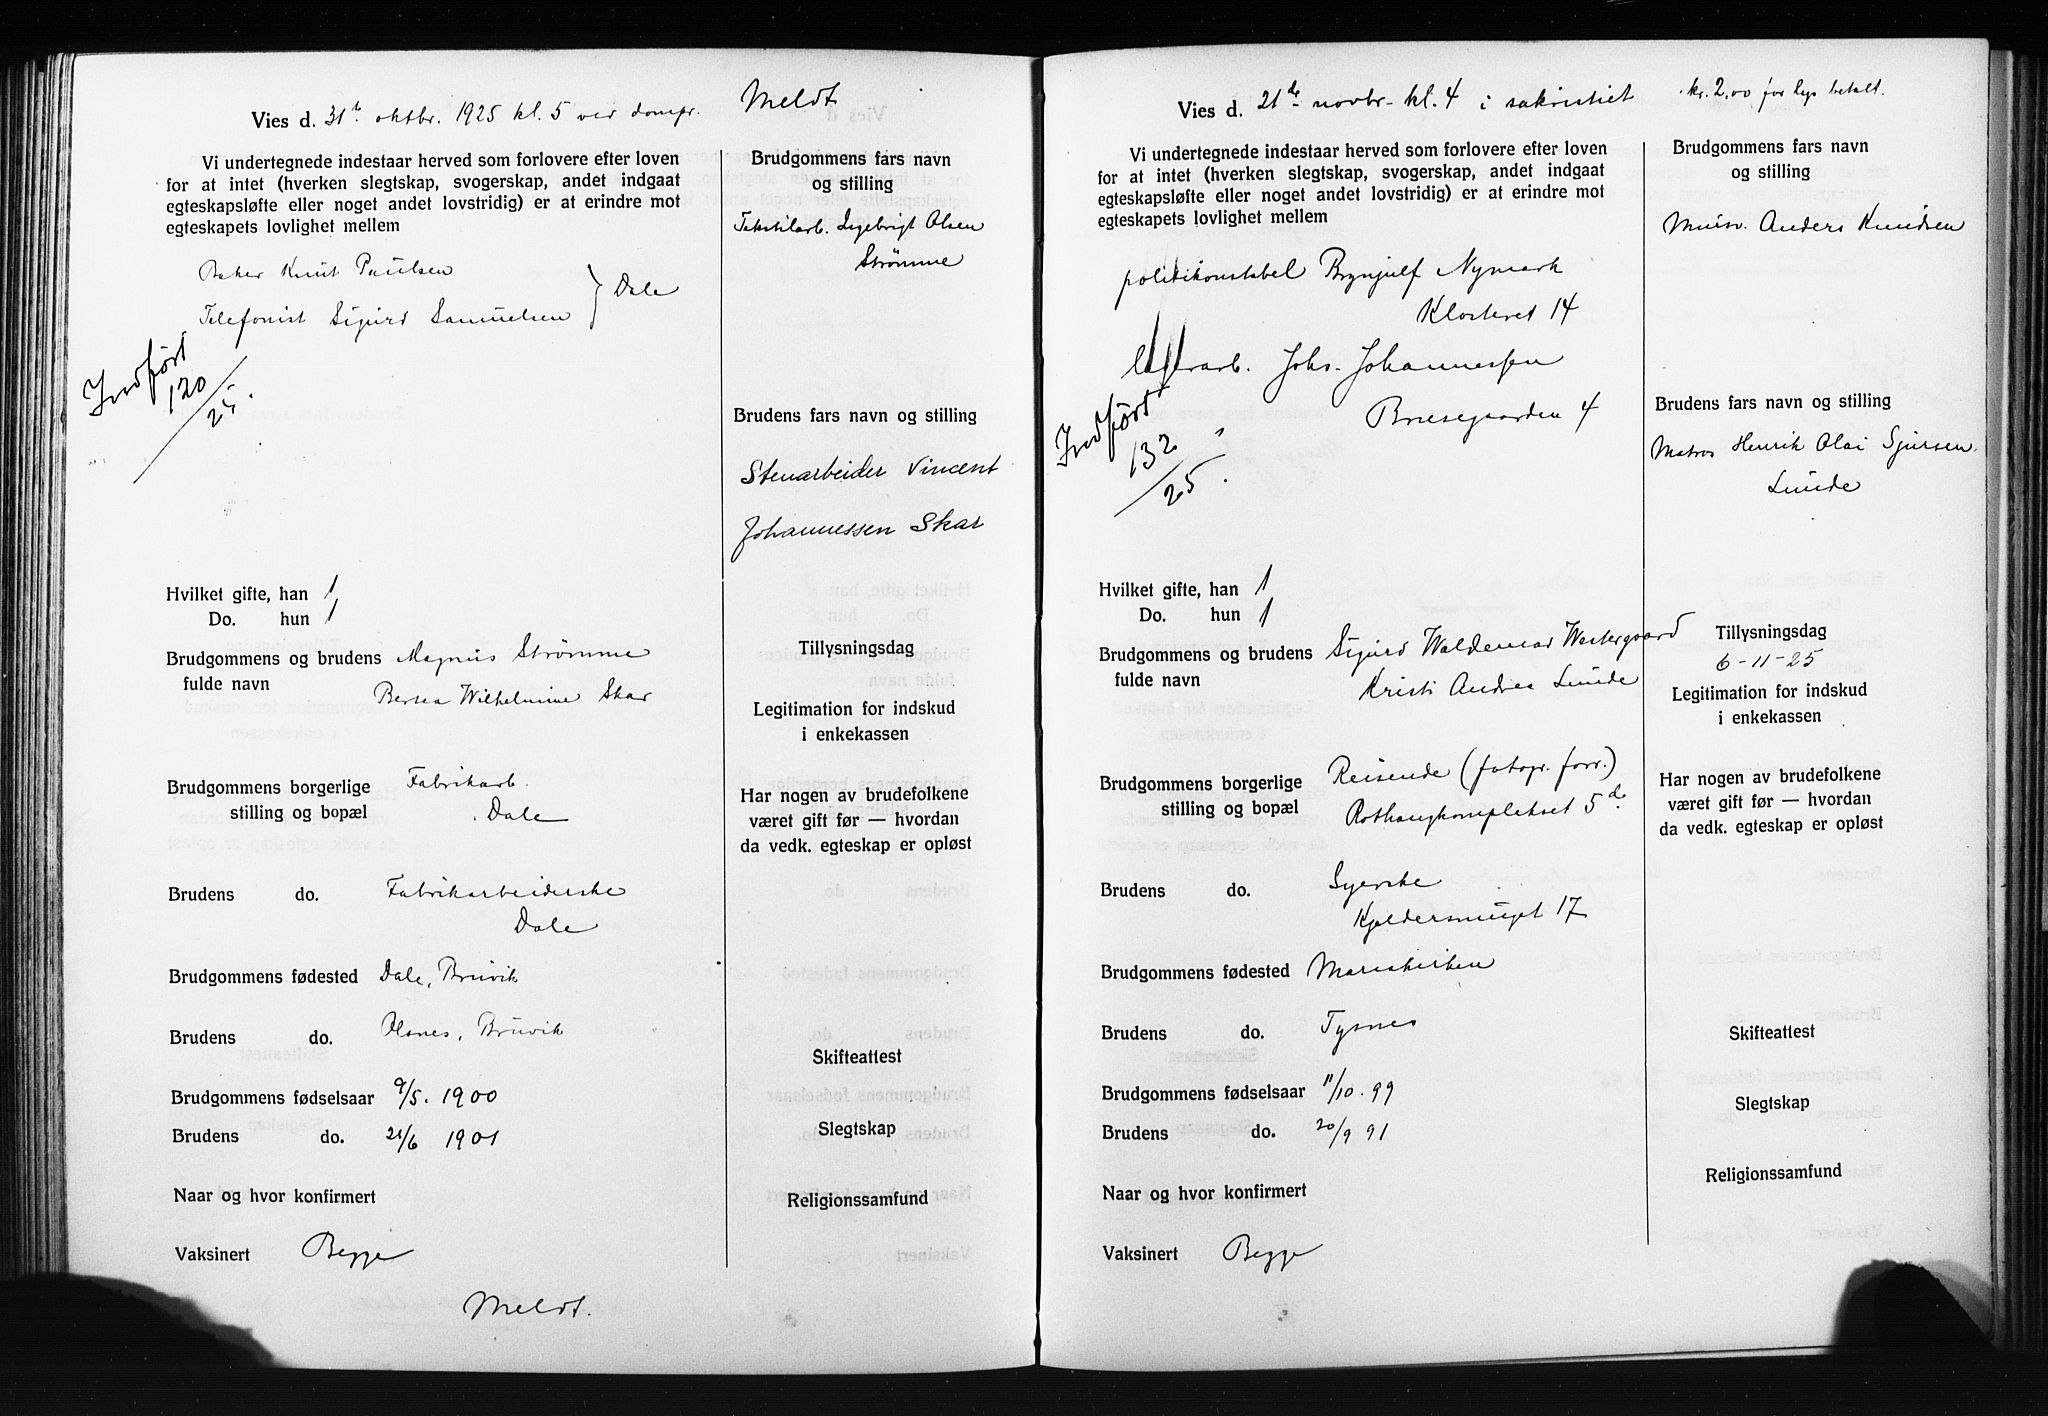 Vies d. 31te oktbr. 1925 kl. 5 ved dompr.
Meldt
Vi undertegnede indestaar herved som forlovere efter loven
for at intet (hverken slegtskap, svogerskap, andet indgaat
egteskapsløfte eller noget andet lovstridig) er at erindre mot
egteskapets lovlighet mellem
Baker Knut Paulsen
Telefonist Sigurd Samuelsen } Dale
Indført
120/25.
Brudgommens fars navn
og stilling
Tekstilarb. Ingebrigt Olsen
Strömme
Brudens fars navn og stilling
Stenarbeider Vincent
Johannessen Skar
Hvilket gifte, han 1
Do. hun 1
Brudgommens og brudens Magnus Strömme
fulde navn
Bertea Wilhelmine Skar
Tillysningsdag
Legitimation for indskud
i enkekassen
Brudgommens borgerlige Fabrikarb.
stilling og bopæl Dale
Har nogen av brudefolkene
været gift før — hvordan
da vedk. egteskap er opløst
Brudens do. Fabrikarbeiderske
Dale
Brudgommens fødested Dale, Bruvik
Brudens do. Bruvik
Skifteattest
Brudgommens fødselsaar 9/5. 1900
Brudens do. 21/6 1901
Slegtskap
Naar og hvor konfirmert
Religionssamfund
Vaksinert Begge
Meldt.
Vies d. 21de novbr. kl. 4 i sakristiet
kr. 2,00 for lys betalt.
Vi undertegnede indestaar herved som forlovere efter loven
for at intet (hverken slegtskap, svogerskap, andet indgaat
egteskapsløfte eller noget andet lovstridig) er at erindre mot
egteskapets lovlighet mellem
politikonstabel Brynjulf Nymark
Klosteret 14
lagerarb. Johs. Johannessen
4
Indført
132/25.
Brudgommens fars navn
og stilling
Mursv. Anders Knudsen
Brudens fars navn og stilling
Matros Henrik Olai Sjursen
Lunde
Hvilket gifte, han 1
Do. hun 1
Brudgommens og brudens Sigurd Waldemar Westergaard
fulde navn Kristi Andrea Lunde
Tillysningsdag
6-11-25
Legitimation for indskud
i enkekassen
Brudgommens borgerlige Reisende (fotogr. forr.)
stilling og bopæl Rothaugkomplekset 5 d.
Har nogen av brudefolkene
været gift før — hvordan
da vedk. egteskap er opløst
Brudens do. Syerske
Kjeldersmuget 17
Brudgommens fødested Mariakirken
Brudens do. Tysnes
Skifteattest
Brudgommens fødselsaar 11/10. 99
Brudens do. 20/9 91
Slegtskap
Religionssamfund
Naar og hvor konfirmert
Vaksinert Begge